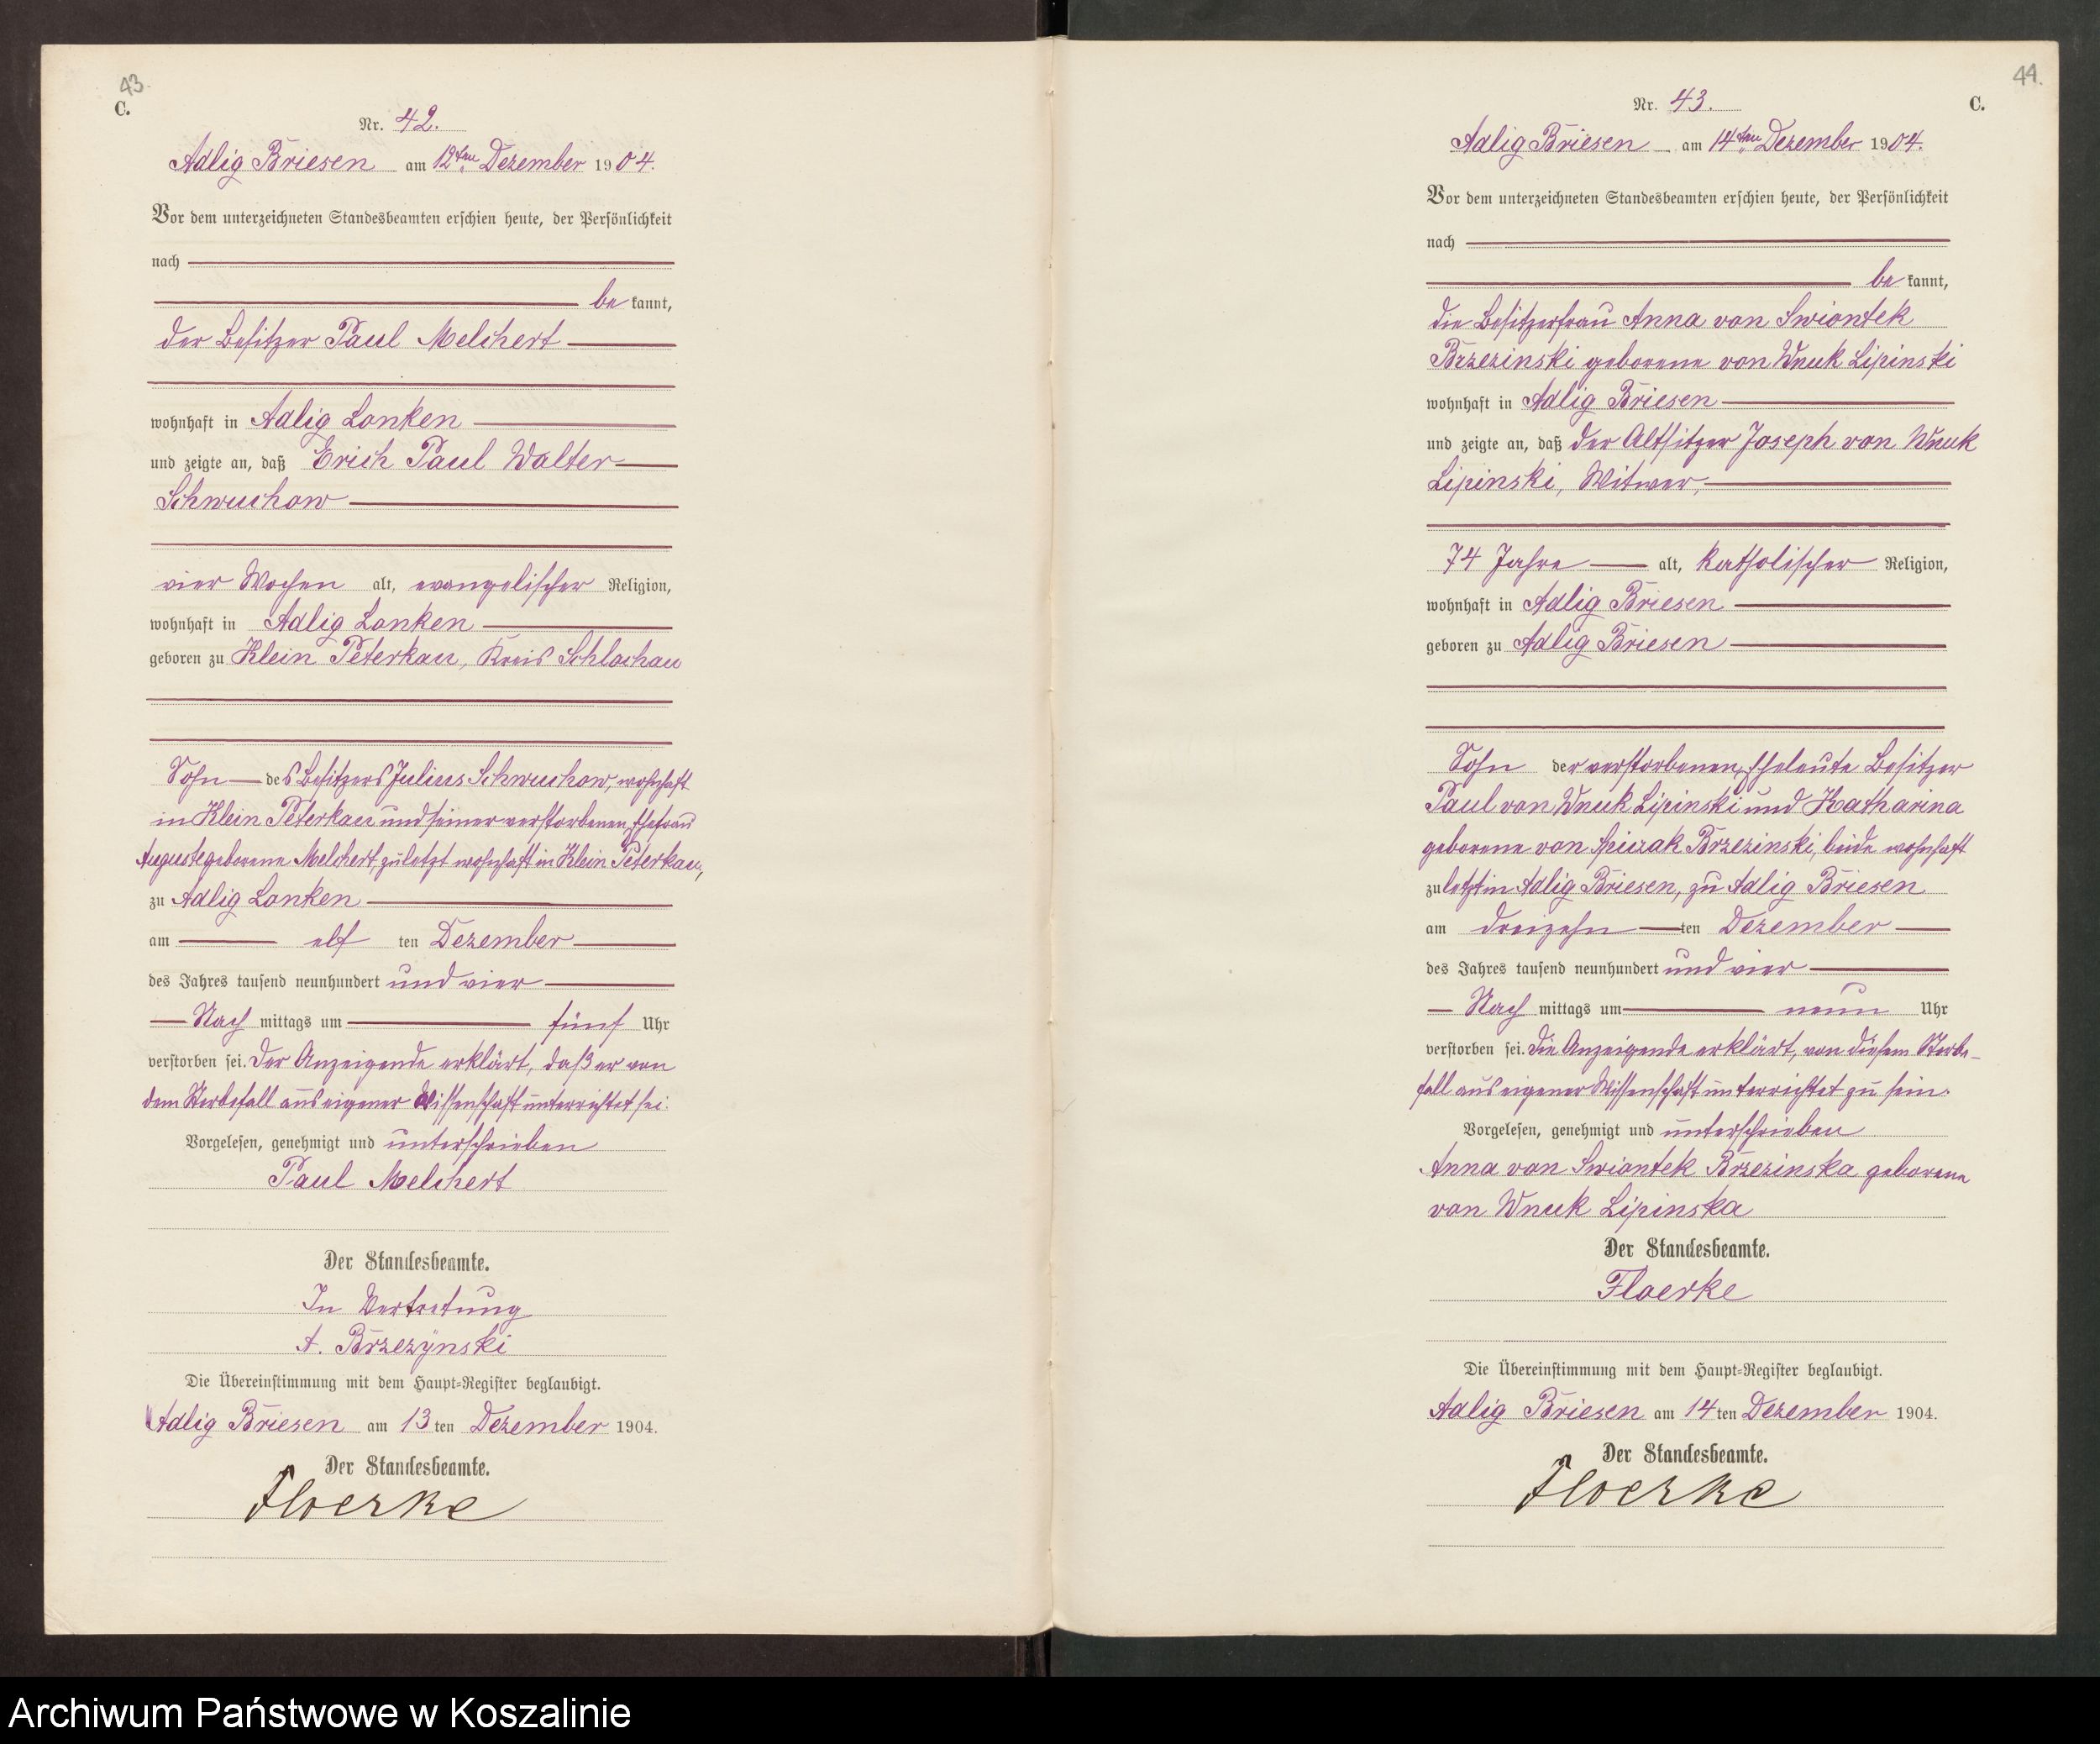 43.
C.
Nr. 42.
Adlig Briesen am 12ten Dezember 1904.
Vor dem unterzeichneten Standesbeamten erschien heute, der Persönlichkeit
nach
be kannt,
der Besitzer Paul Melchert
wohnhaft in Adlig Lonken
und zeigte an, daß Erich Paul Walter
Schwuchow
vier Wochen alt, evangelischer Religion,
wohnhaft in Adlig Lonken
geboren zu Klein Peterkau, Kreis Schlochau
Sohn des Besitzers Julius Schwuchow, wohnhaft
in Klein Peterkau und seiner verstorbenen Ehefrau
Auguste geborene Melchert, zuletzt wohnhaft in Klein Peterkau,
zu Adlig Lonken
am elf ten Dezember
des Jahres tausend neunhundert und vier
Nach mittags um fünf Uhr
verstorben sei. Der Anzeigende erklärt, daß er von
dem Sterbefall aus eigener Wissenschaft unterrichtet sei.
Vorgelesen, genehmigt und unterschrieben
Paul Melchert
Der Standesbeamte.
In Vertretung
A. Brzezynski
Die Übereinstimmung mit dem Haupt-Register beglaubigt.
Adlig Briesen am 13 ten Dezember 1904.
Der Standesbeamte.
Floerke
44.
C.
Nr. 43.
Adlig Briesen am 14ten Dezember 1904.
Vor dem unterzeichneten Standesbeamten erschien heute, der Persönlichkeit
nach
be kannt,
die Besitzerfrau Anna von Swiontek
Brzezinski geborene von Wnuk Lipinski
wohnhaft in Adlig Briesen
und zeigte an, daß der Altsitzer Joseph von Wnuk
Lipinski, Witwer,
74 Jahre alt, katholischer Religion,
wohnhaft in Adlig Briesen
geboren zu Adlig Briesen
Sohn der verstorbenen Eheleute Besitzer
Paul von Wnuk Lipinski und Katharina
geborene von Brzezinski, beide wohnhaft
zuletzt in Adlig Briesen, zu Adlig Briesen
am dreizehn ten Dezember
des Jahres tausend neunhundert und vier
Nach mittags um neun Uhr
verstorben sei. Die Anzeigende erklärt, von diesem Sterbe-
fall aus eigener Wissenschaft unterrichtet zu sein.
Vorgelesen, genehmigt und unterschrieben
Anna von Swiontek Brzezinska geborene
von Wnuk Lipinska
Der Standesbeamte.
Floerke
Die Übereinstimmung mit dem Haupt-Register beglaubigt.
Adlig Briesen am 14 ten Dezember 1904.
Der Standesbeamte.
Floerke
Archiwum Państwowe w Koszalinie